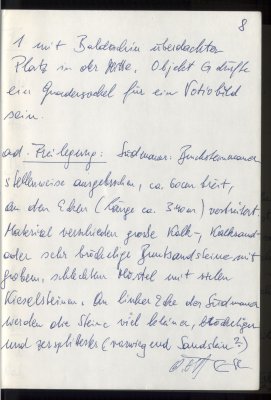 8
1 mit Baldachin überdachter
Platz in der Mitte. Objekt G dürfte
ein Quadersockel für ein Votivbild
sein.
ad. Freilegung: Südmauer: Bruchsteinmauer
stellenweise ausgebrochen, ca. 60cm breit,
an den Ecken (Länge ca. 340m) verstürzt.
Material verschieden große Kalk-, Kalksand-
oder sehr bröckelige Buntsandsteine mit
grobem, schlechten Mörtel mit vielen
Kieselsteinen. An linker Ecke der Südmauer
werden die Steine viel kleiner, bröckeliger
und zersplitterter (vorwiegend Sandstein?)